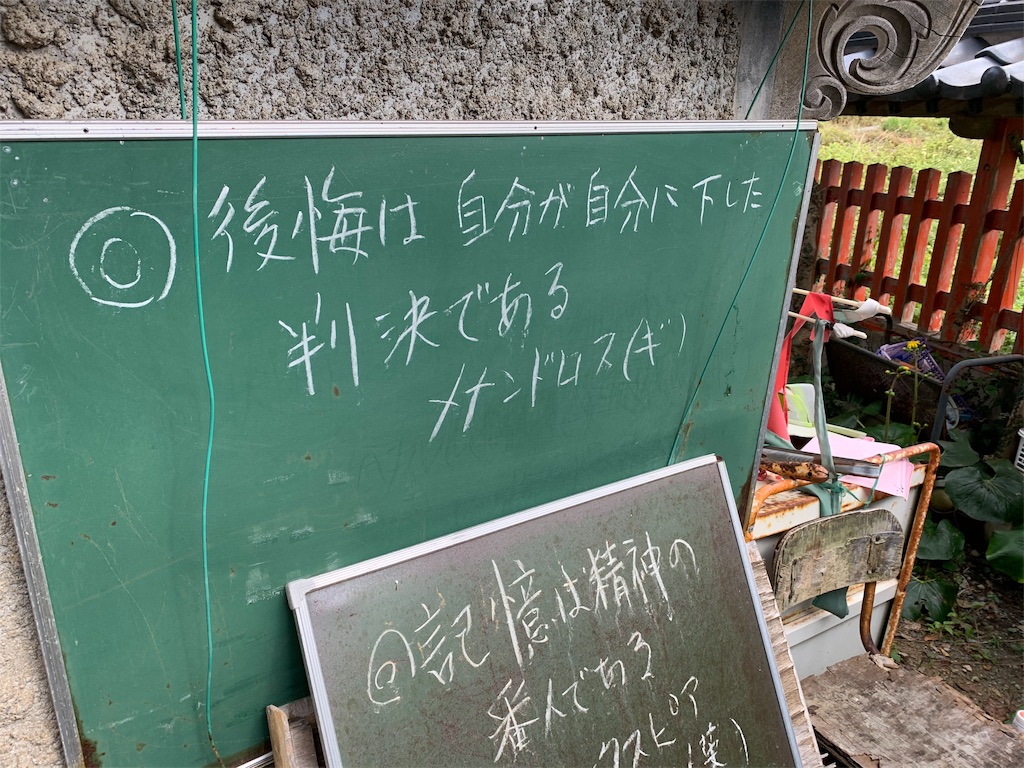 ◎ 後悔は自分が自分に下した
判決である
メナンドロス(ギ)
◎記憶は精神の
番人である
クスピア